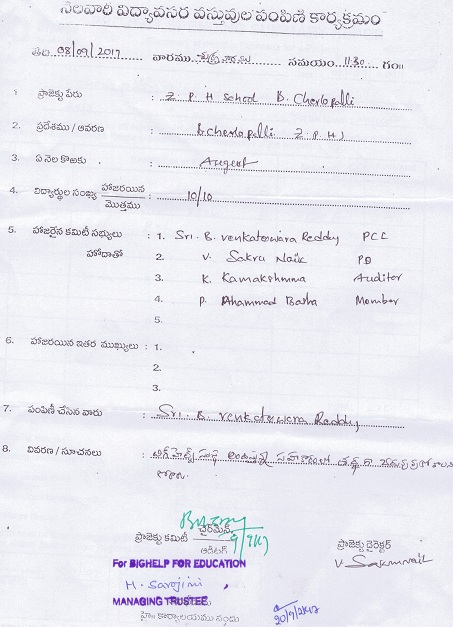 నెలవారి విద్యావసర వస్తువుల పంపిణి కార్యక్రమం
తేది 08/09/2017 వారము శుక్రవారం సమయం 11:30 గం॥
1 ప్రాజెక్టు పేరు : Z. P. H School B. Cherlopalli
2. ప్రదేశము / ఆవరణ : B.Cherlopalli Z P H S
3. ఏ నెల కొఱకు : August
4. విద్యార్థుల సంఖ్య హాజరయిన / మొత్తము : 10/10
5. హాజరైన కమిటీ సభ్యులు : 1. Sri. B. Venkateswara Reddy PCC
హోదాతో 2. V. Sakru Naik PD
3. K. Kamakshmma Auditor
4. P. Ahammad Basha Member
5.
6. హాజరయిన ఇతర ముఖ్యులు : 1.
2.
3.
7. పంపిణీ చేసిన వారు : Sri. B. Venkateswara Reddy
8. వివరణ / సూచనలు :
ప్రాజెక్టు కమిటీ చైర్మెన్
ఆడిటర్
ప్రాజెక్టు డైరెక్టర్
V. Sakrunaik
For BIGHELP FOR EDUCATION
H. Sarojini
MANAGING TRUSTEE
హె॥ కార్యాలయము నందు
20/9/2017